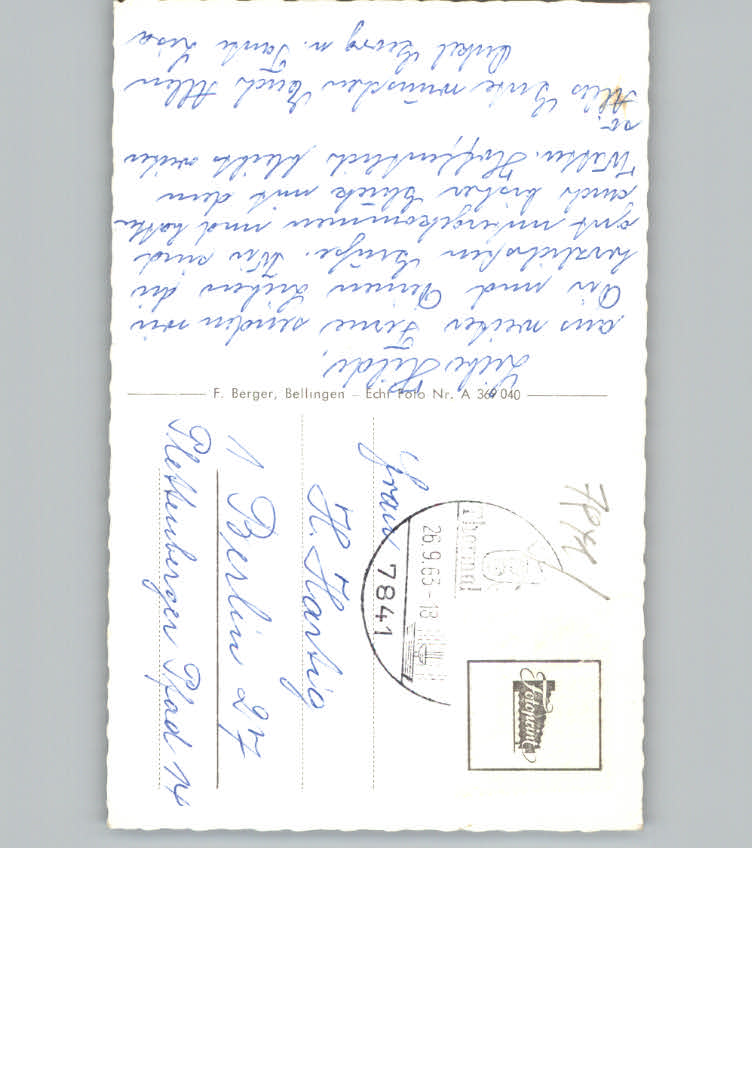 Liebe Hilde,
aus weiter Ferne senden wir
Dir und Deinen Lieben die
herzlichsten Grüße. Wir sind
gut angekommen und hatten
auch bisher Glück mit dem
Wetter. Hoffentlich bleibts weiter
so.
Alles Gute wünschen Euch Allen
Onkel Georg u. Tante Lisa
F. Berger, Bellingen – Echt Foto Nr. A 369 040
Fotoprint
Thermal
26.9.63-18
7841
Frau
H. Härtig
1 Berlin 27
Plettenberger Pfad 14